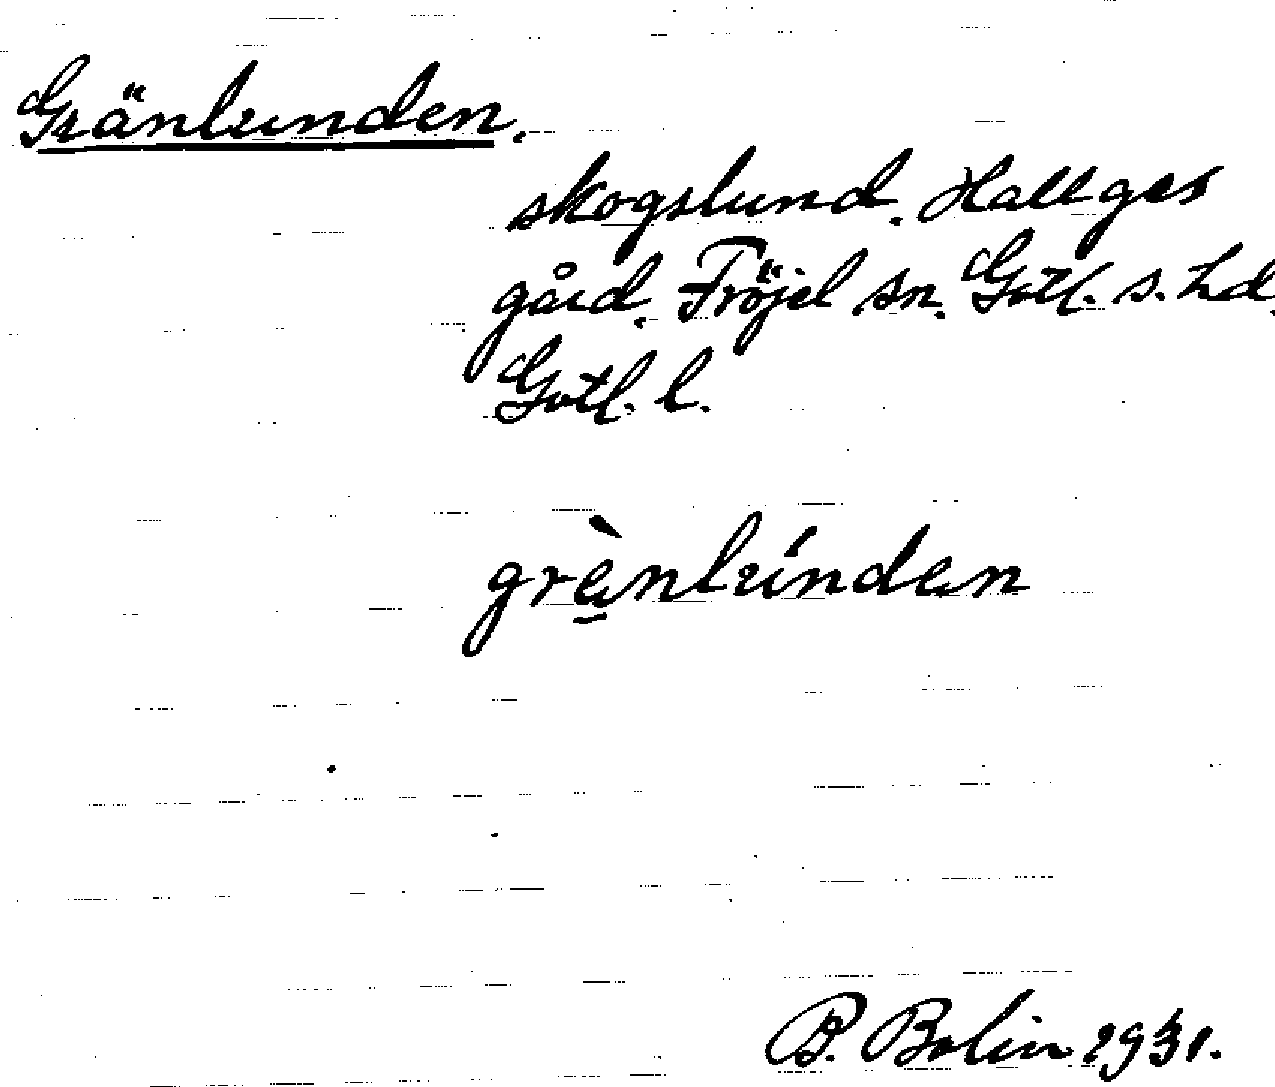 Gränlunden.
skogslund. Hallges
gård. Fröjel sn. Gotl. s. hd.
Gotl. l.
grènlúndan
B. Bolin 1931.